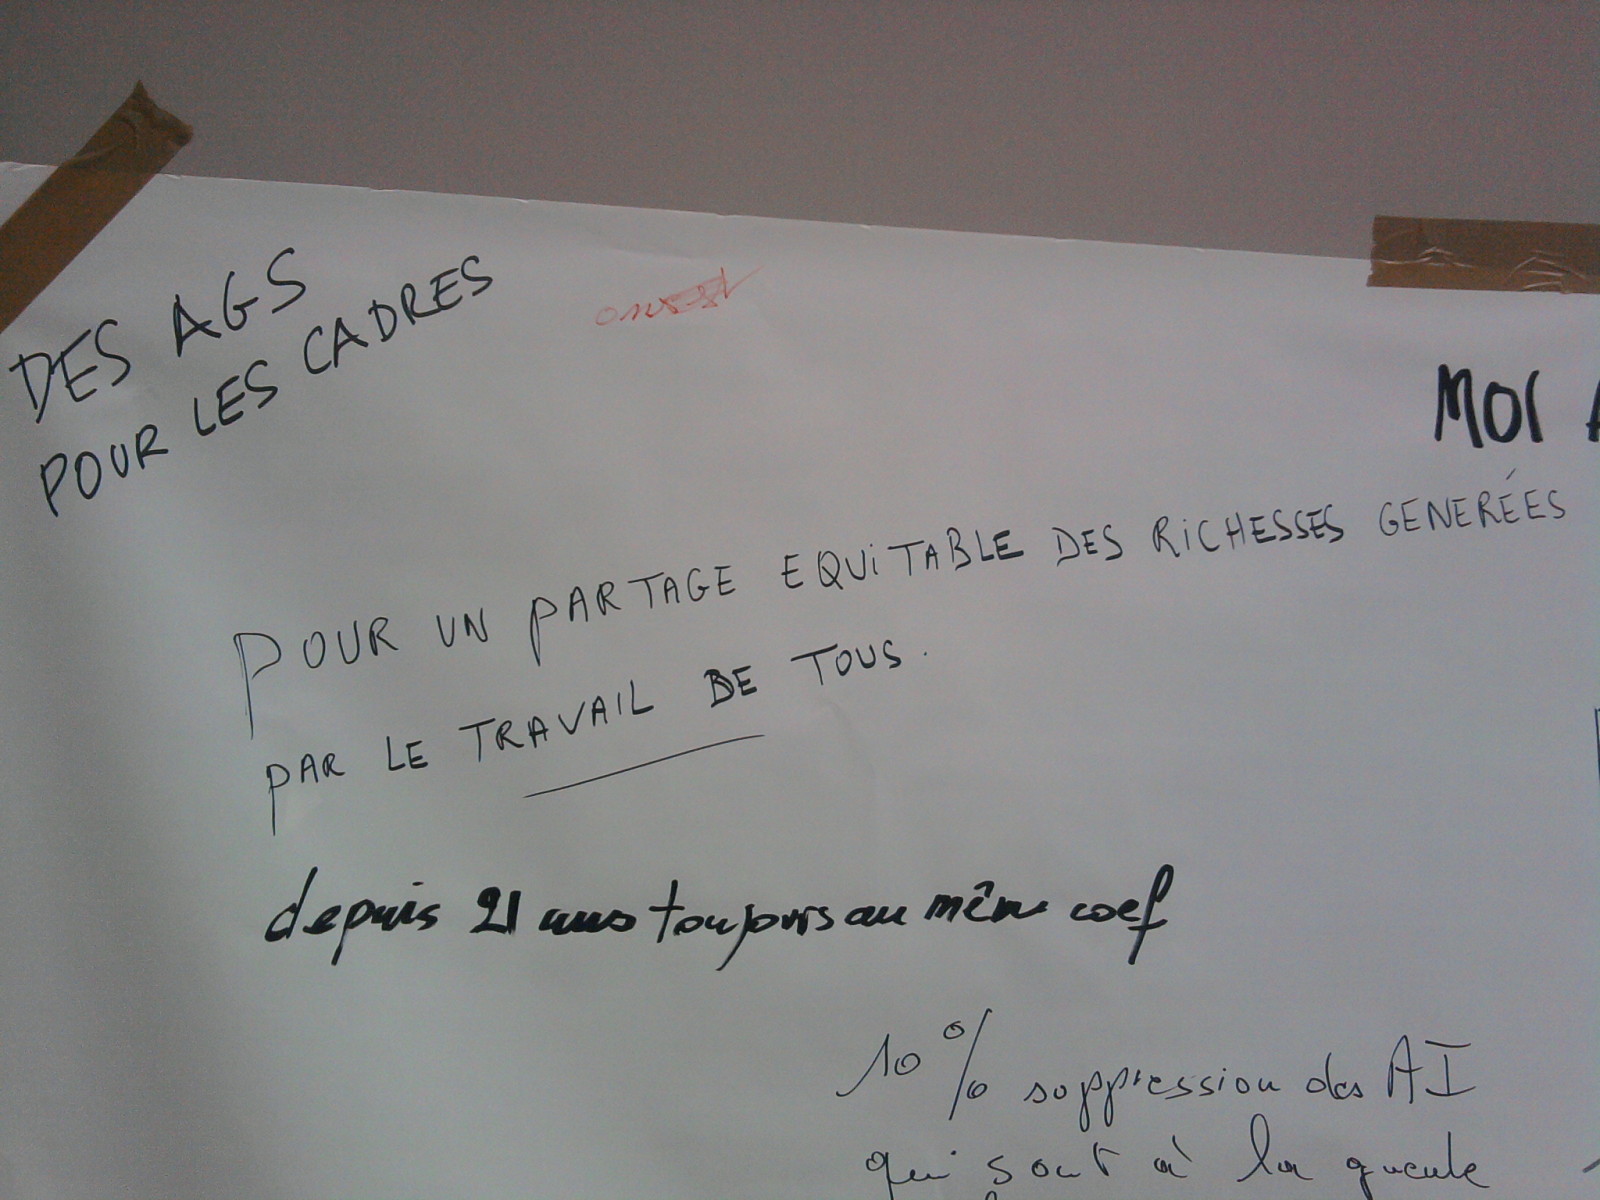 DES AGS
POUR LES CADRES
MOI A
POUR UN PARTAGE EQUITABLE DES RICHESSES GENERÉES
PAR LE TRAVAIL DE TOUS.
depuis 21 ans toujours au même coef
10% suppression des AI
qui sont à la gueule